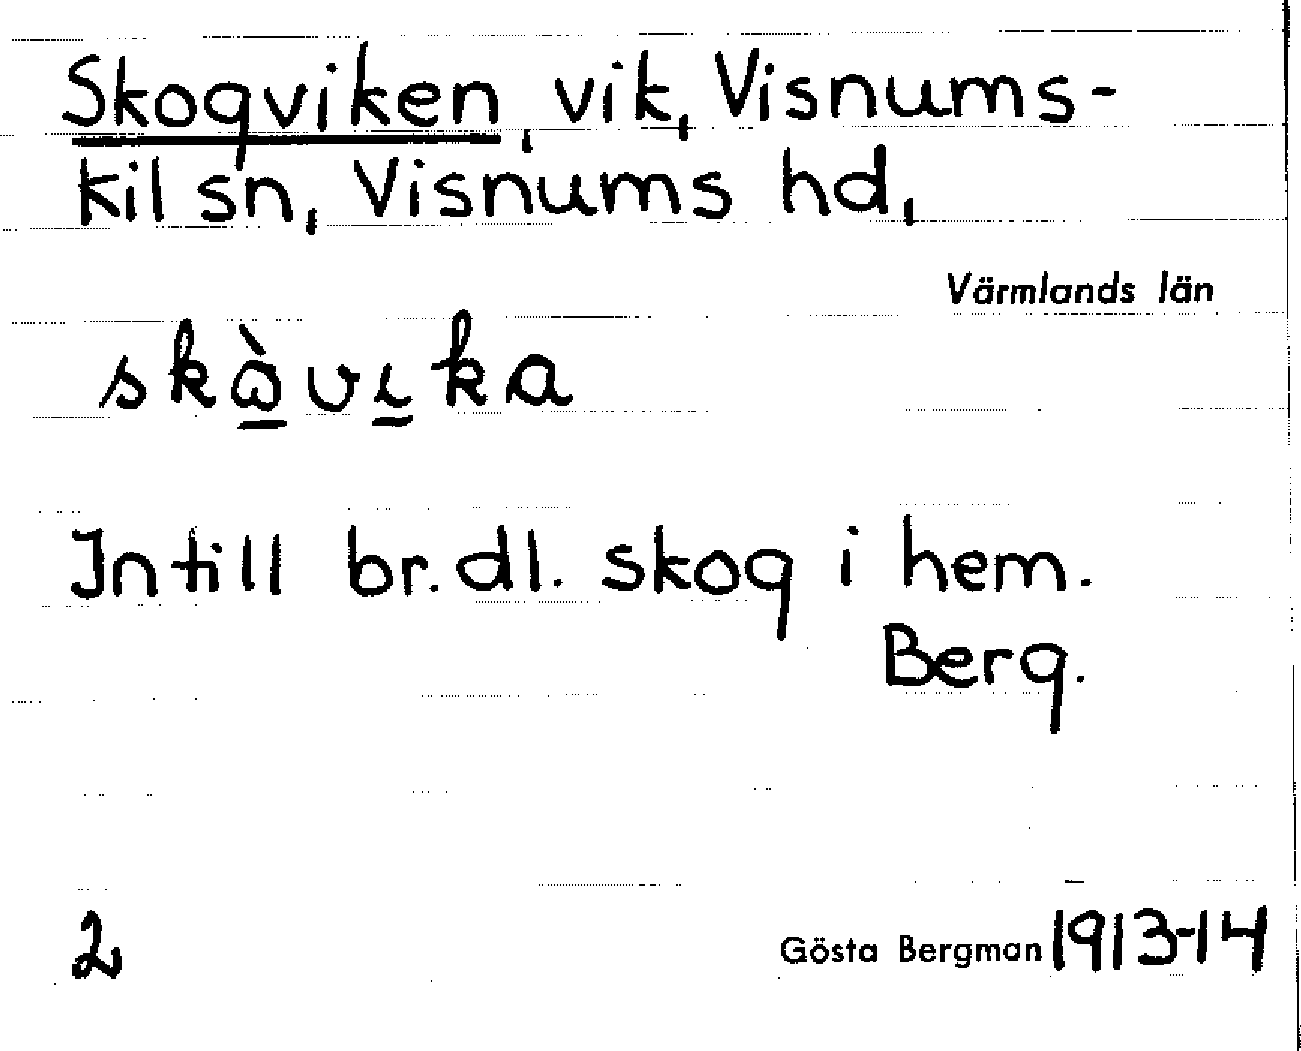 Skogviken, vik, Visnums-
kil sn, Visnums hd,
Värmlands län
skὼvıka
Intill br. dl. skog i hem.
Berg.
2
Gösta Bergman 1913-14